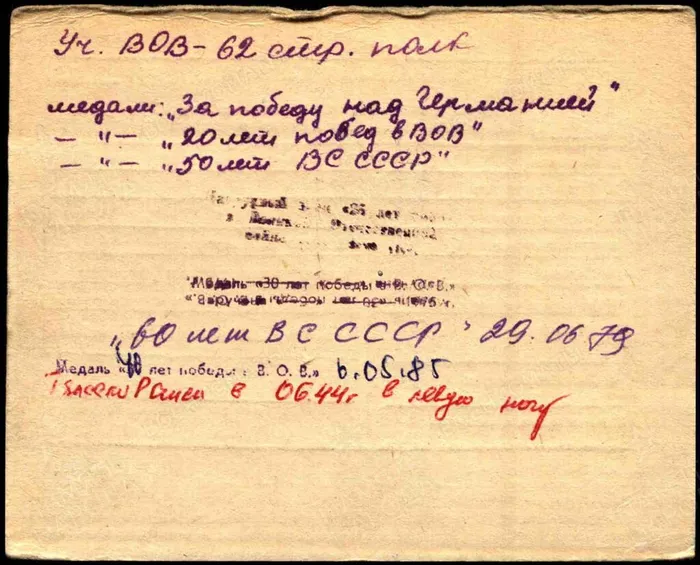 Уч. ВОВ - 62 стр. полк
медали: „За победу над Германией"
— " — „20 лет побед в ВОВ"
— " — „50 лет ВС СССР"
знак «25 лет
в Отечественной
войне
Медаль «30 лет победы в В. О. В.»
„60 лет ВС СССР" 29.06 79
Медаль «40 лет победы в В. О. В.» 6.05.85
Ранен в 06.44г в левую ногу